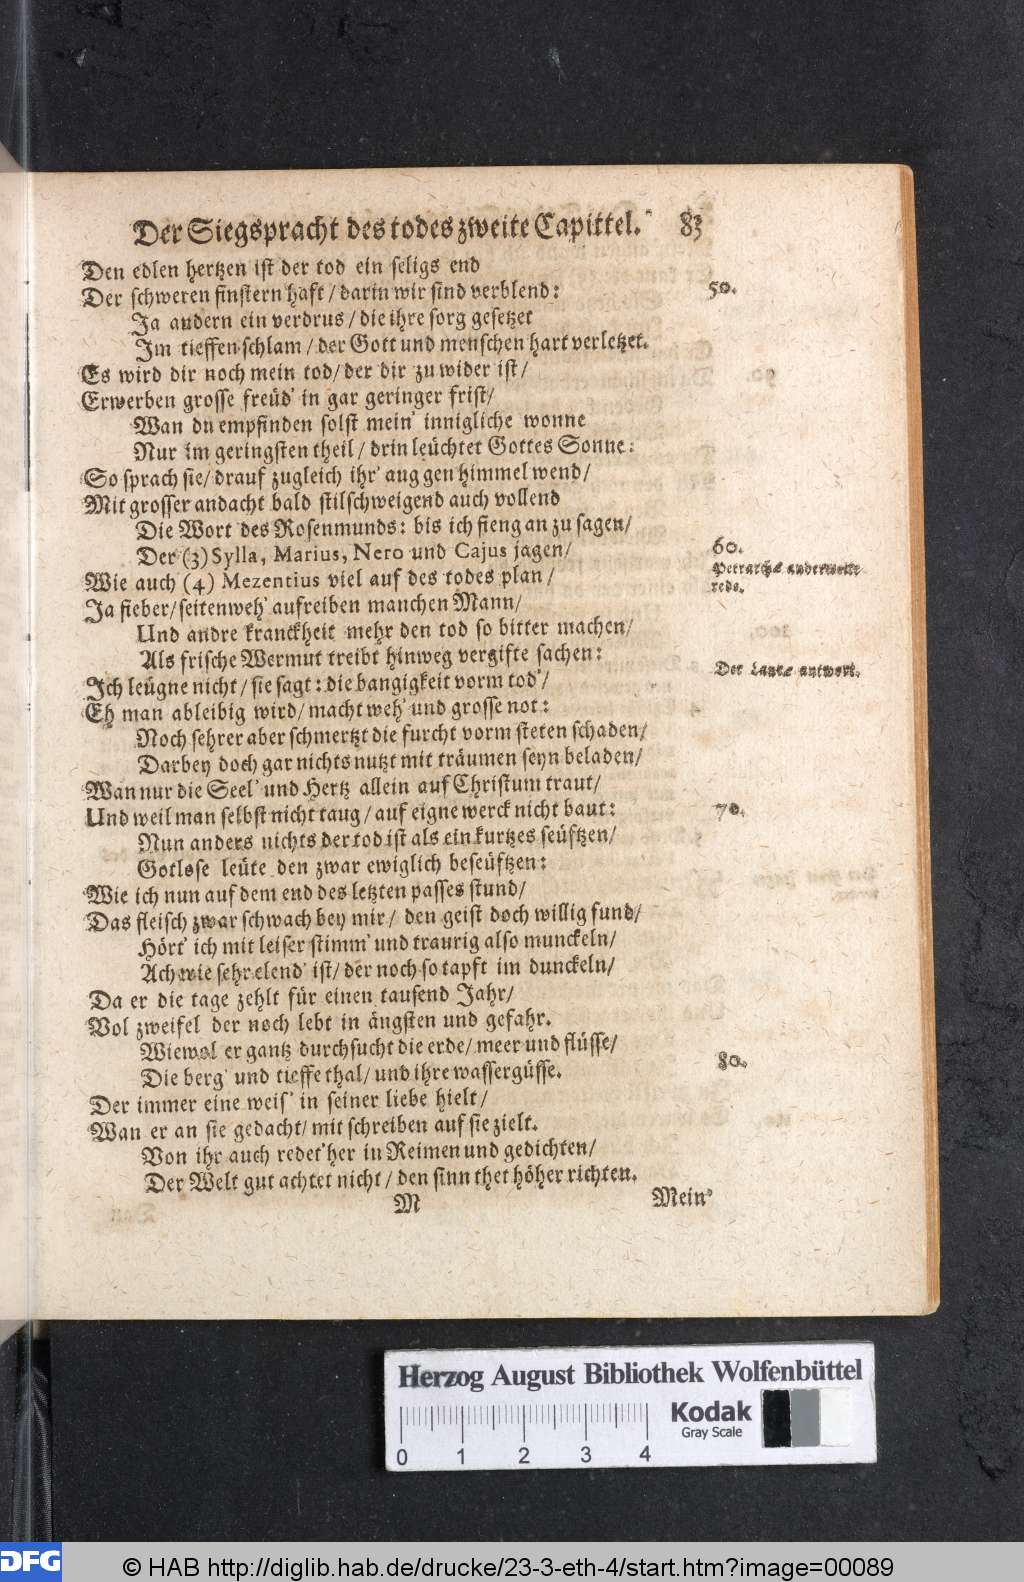 Der Siegspracht des todes zweite Capittel. 83
Den edlen hertzen ist der tod ein seligs end
Der schweren finstern haft / darin wir sind verblend: 50.
Ja andern ein verdrus / die ihre sorg gesetzet
Im tieffen schlam / der Gott und menschen hart verletzet.
Es wird dir noch mein tod / der dir zu wider ist /
Erwerben grosse freüd' in gar geringer frist /
Wan du empfinden solst mein' innigliche wonne
Nur im geringsten theil / drin leüchtet Gottes Sonne:
So sprach sie / drauf zugleich ihr' aug gen himmel wend /
Mit grosser andacht bald stilschweigend auch vollend
Die Wort des Rosenmunds: bis ich fieng an zu sagen /
Der (3) Sylla, Marius, Nero und Cajus jagen / 60.
Petrarchæ anderweite
rede.
Wie auch (4) Mezentius viel auf des todes plan /
Ja fieber / seitenweh' aufreiben manchen Mann /
Und andre kranckheit mehr den tod so bitter machen /
Als frische Wermut treibt hinweg vergifte sachen:
Der Lauræ antwort.
Ich leügne nicht / sie sagt: die bangigkeit vorm tod' /
Eh man ableibig wird / macht weh' und grosse not:
Noch sehrer aber schmertzt die furcht vorm steten schaden /
Darbey doch gar nichts nutzt mit träumen seyn beladen /
Wan nur die Seel' und Hertz allein auf Christum traut /
Und weil man selbst nicht taug / auf eigne werck nicht baut: 70.
Nun anders nichts der tod ist als ein kurtzes seüftzen /
Gotlose leüte den zwar ewiglich beseüftzen:
Wie ich nun auf dem end des letzten passes stund /
Das fleisch zwar schwach bey mir / den geist doch willig fund /
Hört' ich mit leiser stimm' und traurig also munckeln /
Ach wie sehr elend' ist / der noch so tapft im dunckeln /
Da er die tage zehlt für einen tausend Jahr /
Vol zweifel der noch lebt in ängsten und gefahr.
Wiewol er gantz durchsucht die erde / meer und flüsse /
Die berg' und tieffe thal / und ihre wassergüsse. 80.
Der immer eine weis' in seiner liebe hielt /
Wan er an sie gedacht / mit schreiben auf sie zielt.
Von ihr auch redet' her in Reimen und gedichten /
Der Welt gut achtet nicht / den sinn thet höher richten.
M Mein'
Herzog August Bibliothek Wolfenbüttel
Kodak
Gray Scale
0 1 2 3 4
DFG © HAB http://diglib.hab.de/drucke/23-3-eth-4/start.htm?image=00089